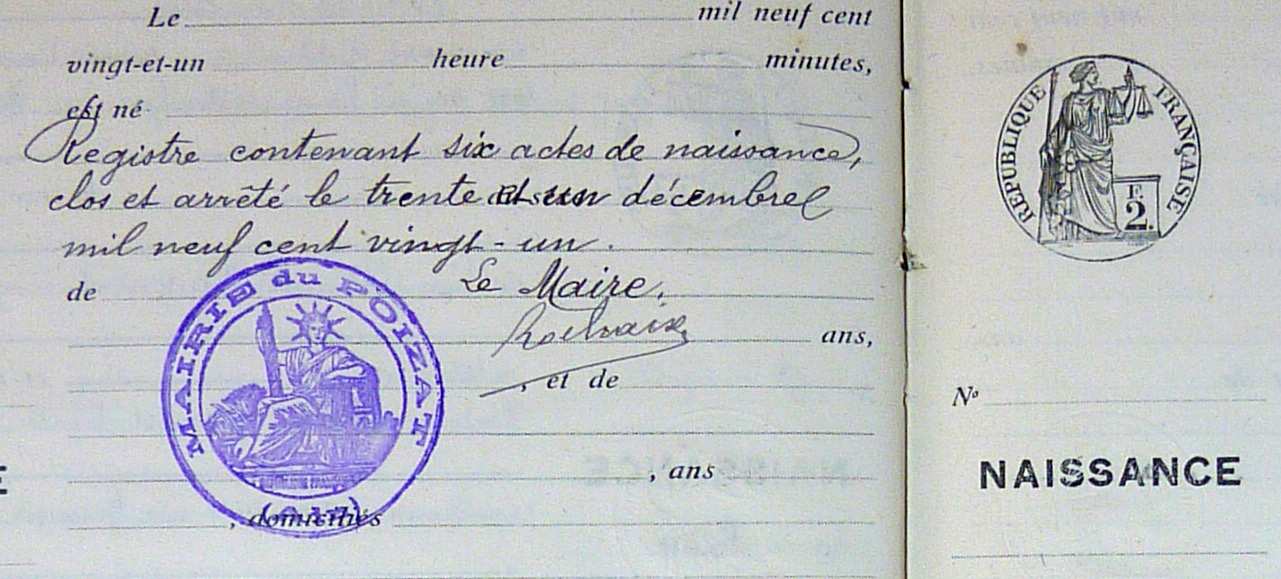 Le mil neuf cent
vingt-et-un heure minutes,
est né
Registre contenant six actes de naissance,
clos et arrêté le trente et un décembre
mil neuf cent vingt-un.
de Le Maire.
ans,
, et de
, ans
, domiciliés
MAIRIE du POIZAT
(AIN)
RÉPUBLIQUE FRANÇAISE
F.
2.
No
NAISSANCE